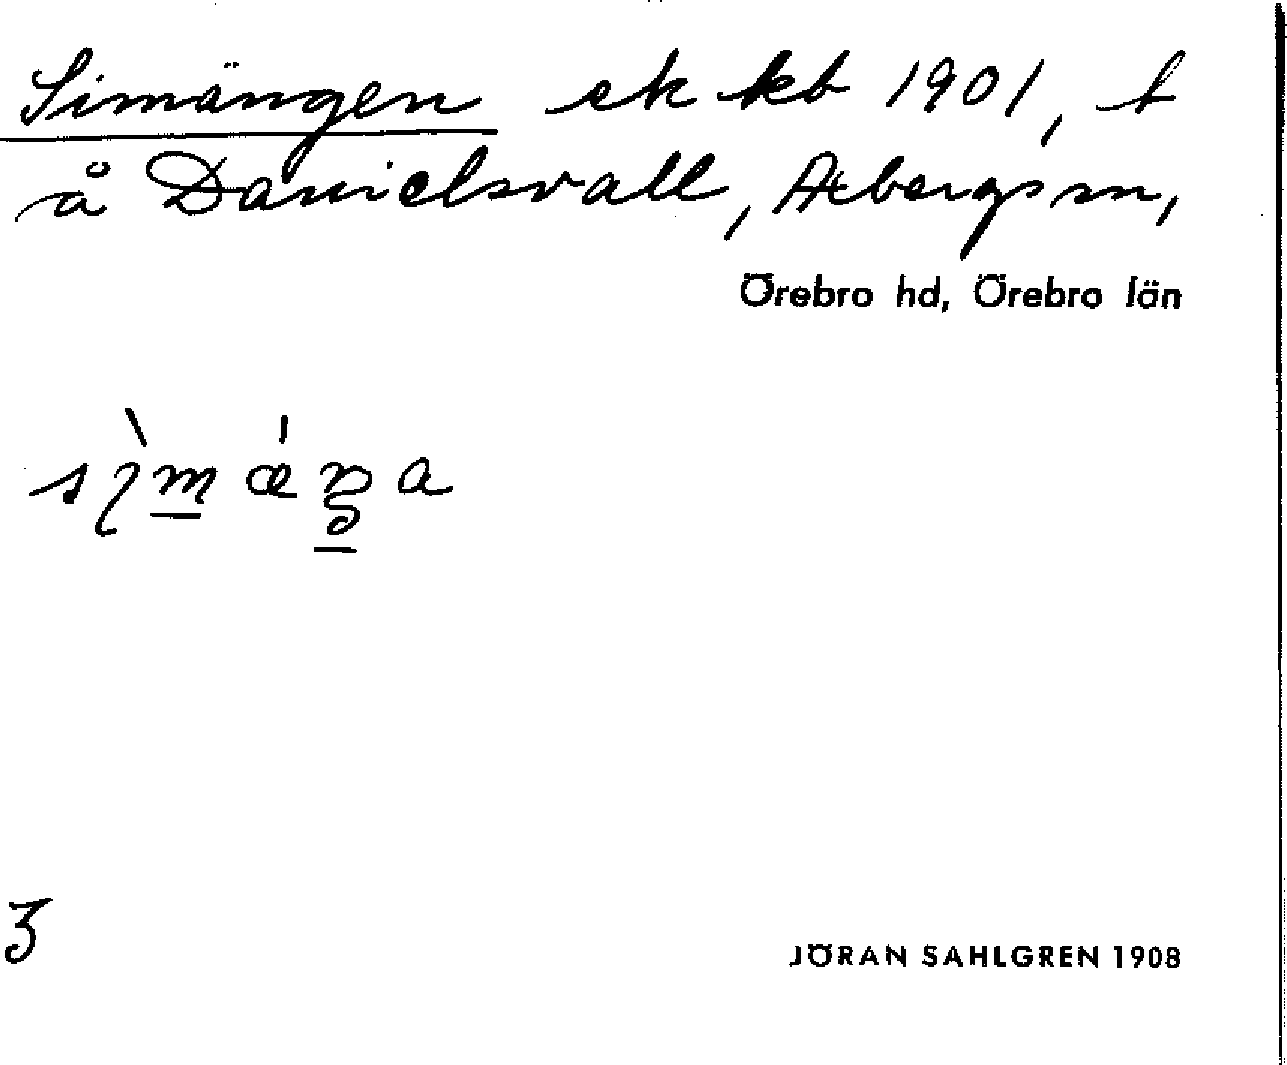 Simängen ek kb 1901, t
å Danielsvall, Axbergs sn,
Örebro hd, Örebro län
3
JÖRAN SAHLGREN 1908